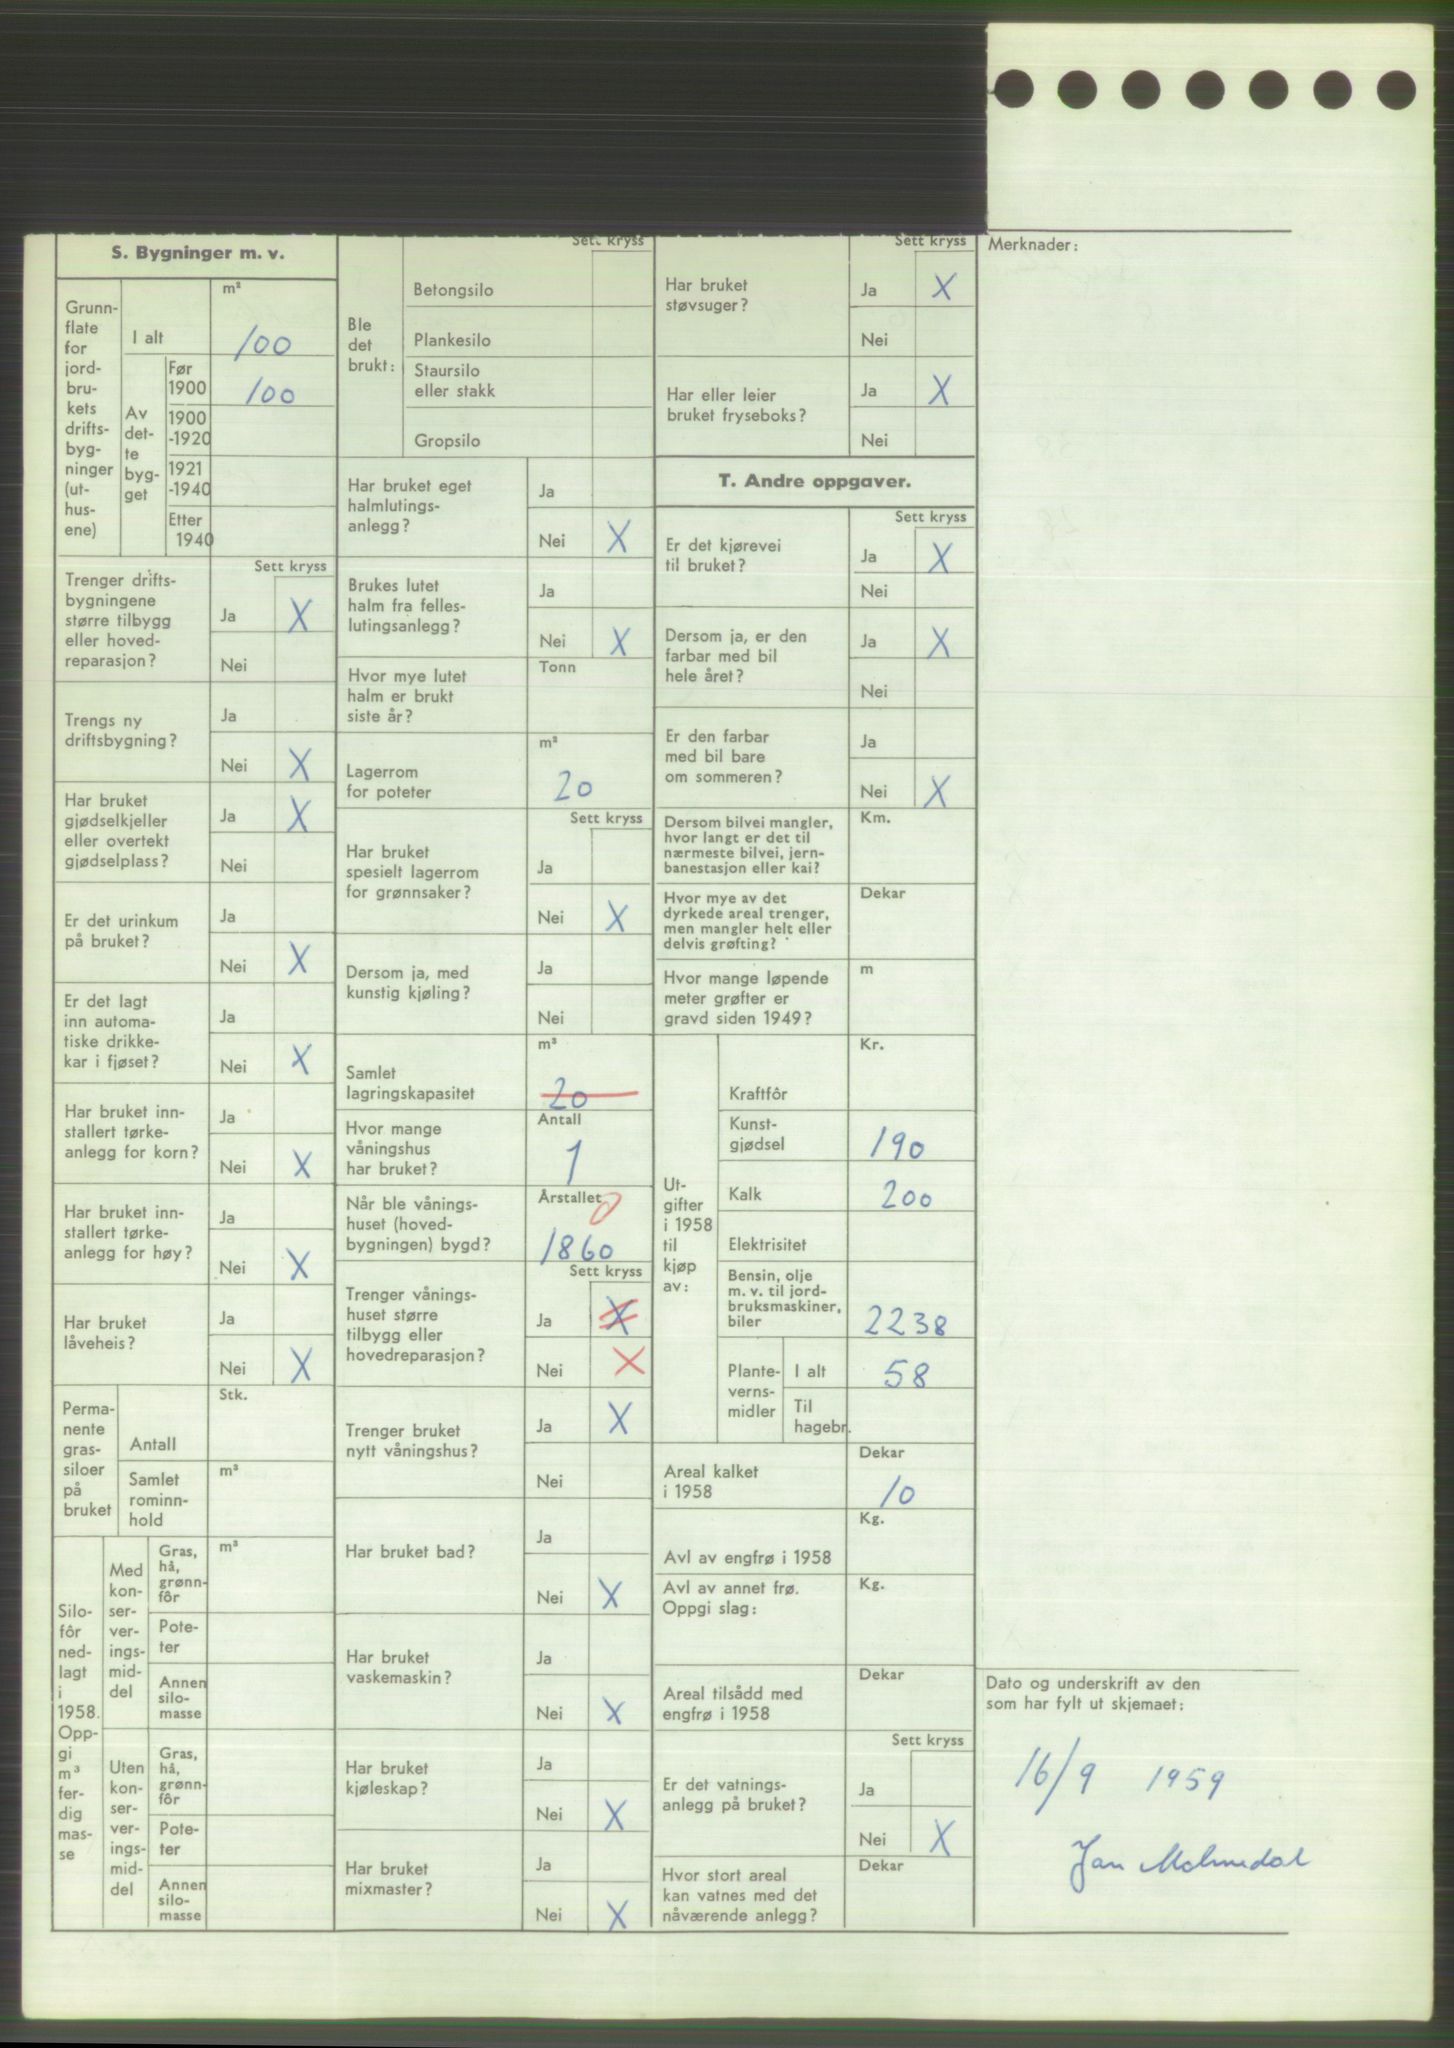 S. Bygninger m. v.
Grunn-
flate
for
jord-
bru-
kets
drifts-
byg-
ninger
(ut-
hus-
ene)
m²
I alt 100
Av
det-
te
byg-
get
Før
1900 100
1900
-1920
1921
-1940
Etter
1940
Sett kryss
Trenger drifts-
bygningene
større tilbygg
eller hoved-
reparasjon?
Ja X
Nei
Trengs ny
driftsbygning?
Ja
Nei X
Har bruket
gjødselkjeller
eller overtekt
gjødselplass?
Ja X
Nei
Er det urinkum
på bruket?
Ja
Nei X
Er det lagt
inn automa-
tiske drikke-
kar i fjøset?
Ja
Nei X
Har bruket inn-
stallert tørke-
anlegg for korn?
Ja
Nei X
Har bruket inn-
stallert tørke-
anlegg for høy?
Ja
Nei X
Har bruket
låveheis?
Ja
Nei X
Perma-
nente
gras-
siloer
på
bruket
Stk.
Antall
m³
Samlet
rominn-
hold
Silo-
fôr
ned-
lagt
i
1958.
Opp-
gi
m³
fer-
dig
mas-
se
Med
kon-
ser-
ver-
ings-
mid-
del
m³
Gras,
hå,
grønn-
fôr
Pote-
ter
Annen
silo-
masse
Uten
kon-
ser-
ver-
ings-
mid-
del
Gras,
hå,
grønn-
fôr
Pote-
ter
Annen
silo-
masse
Sett kryss
Ble
det
brukt:
Betongsilo
Plankesilo
Staursilo
eller stakk
Gropsilo
Har bruket eget
halmlutings-
anlegg?
Ja
Nei X
Brukes lutet
halm fra felles-
lutingsanlegg?
Ja
Nei X
Hvor mye lutet
halm er brukt
siste år?
Tonn
Lagerrom
for poteter
m²
20
Sett kryss
Har bruket
spesielt lagerrom
for grønnsaker?
Ja
Nei X
Dersom ja, med
kunstig kjøling?
Ja
Nei
Samlet
lagringskapasitet
m³
20
Hvor mange
våningshus
har bruket?
Antall
1
Når ble vånings-
huset (hoved-
bygningen) bygd?
Årstallet 0
1860
Sett kryss
Trenger vånings-
huset større
tilbygg eller
hovedreparasjon?
Ja X
Nei X
Trenger bruket
nytt våningshus?
Ja X
Nei
Har bruket bad?
Ja
Nei X
Har bruket
vaskemaskin?
Ja
Nei X
Har bruket
kjøleskap?
Ja
Nei X
Har bruket
mixmaster?
Ja
Nei X
Sett kryss
Har bruket
støvsuger?
Ja X
Nei
Har eller leier
bruket fryseboks?
Ja X
Nei
T. Andre oppgaver.
Sett kryss
Er det kjørevei
til bruket?
Ja X
Nei
Dersom ja, er den
farbar med bil
hele året?
Ja X
Nei
Er den farbar
med bil bare
om sommeren?
Ja
Nei X
Dersom bilvei mangler,
hvor langt er det til
nærmeste bilvei, jern-
banestasjon eller kai?
Km.
Hvor mye av det
dyrkede areal trenger,
men mangler helt eller
delvis grøfting?
Dekar
Hvor mange løpende
meter grøfter er
gravd siden 1949?
m
Ut-
gifter
i 1958
til
kjøp
av:
Kr.
Kraftfôr
Kunst-
gjødsel 190
Kalk 200
Elektrisitet
Bensin, olje
m. v. til jord-
bruksmaskiner,
biler 2238
Plante-
verns-
midler
I alt 58
Til
hagebr.
Areal kalket
i 1958
Dekar
10
Avl av engfrø i 1958
Kg.
Avl av annet frø.
Oppgi slag:
Kg.
Areal tilsådd med
engfrø i 1958
Dekar
Sett kryss
Er det vatnings-
anlegg på bruket?
Ja
Nei X
Hvor stort areal
kan vatnes med det
nåværende anlegg?
Dekar
Merknader:
Dato og underskrift av den
som har fylt ut skjemaet:
16/9 1959
Jan Malmedal